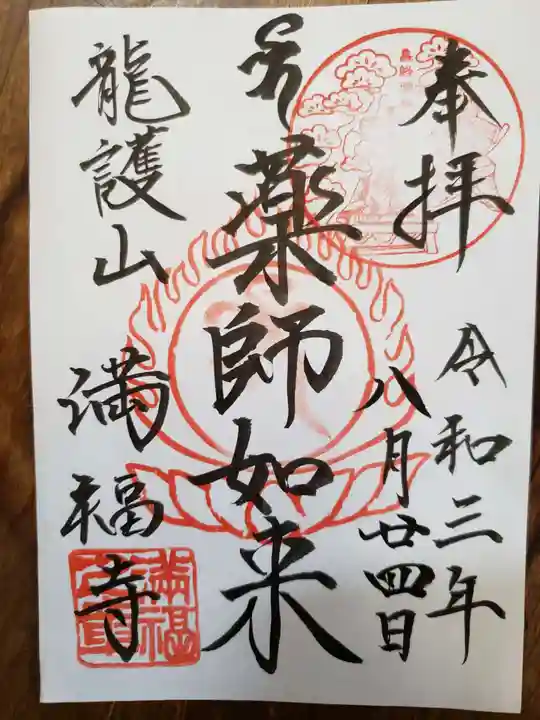 奉拝
令和三年
八月廿四日
薬師如来
龍護山
満福寺